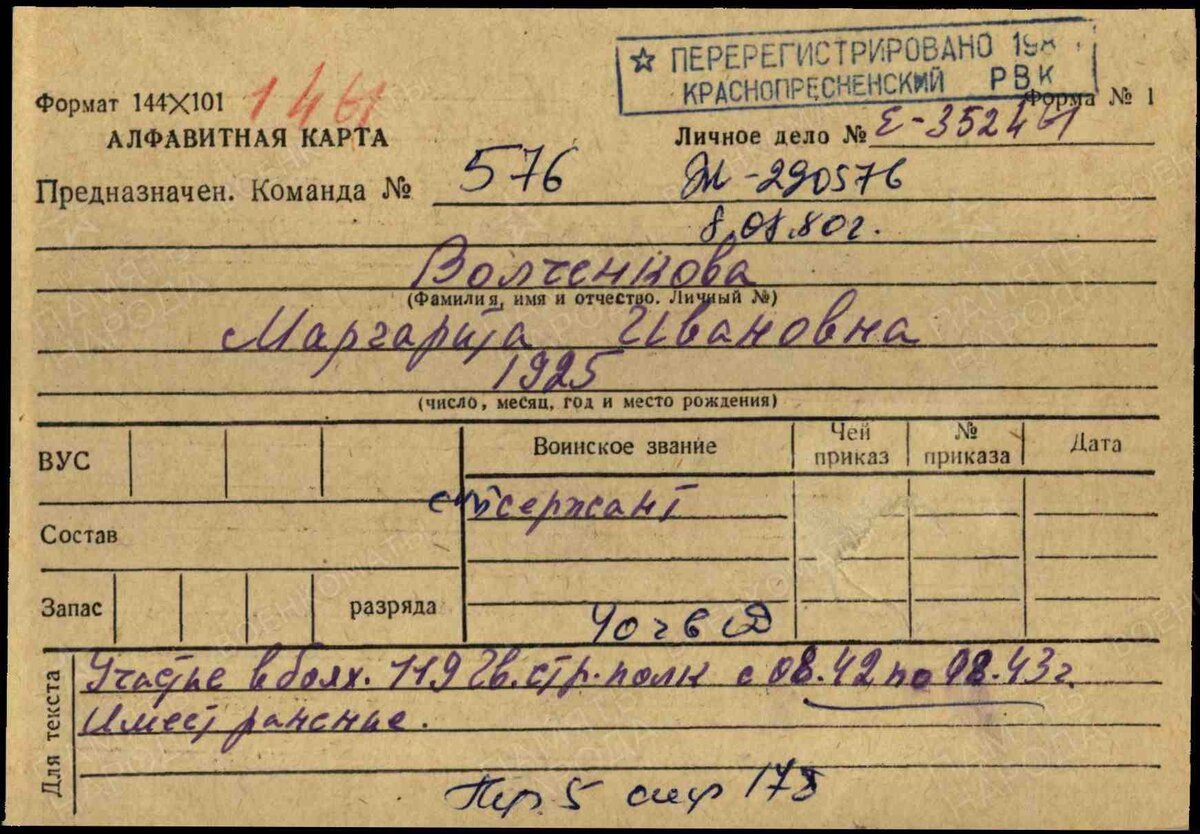 ☆ ПЕРЕРЕГИСТРИРОВАНО 198
КРАСНОПРЕСНЕНСКИЙ РВК
Формат 144×101 1461
Форма № 1
АЛФАВИТНАЯ КАРТА
Личное дело № Е-352461
Предназначен. Команда № 576
Ж-290576
8.08.80г.
Волченкова
(Фамилия, имя и отчество. Личный №)
Маргарита Ивановна
1925
(число, месяц, год и место рождения)
ВУС
Воинское звание
Чей приказ
№ приказа
Дата
сержант
Состав
Запас
разряда
Для текста
Участье в боях. 119 Гв. стр. полк с 08.42 по 08.43г.
Имест ранение.
Пр 5 178
ПАМЯТЬ НАРОДА
ВОЕНКОМАТЫ